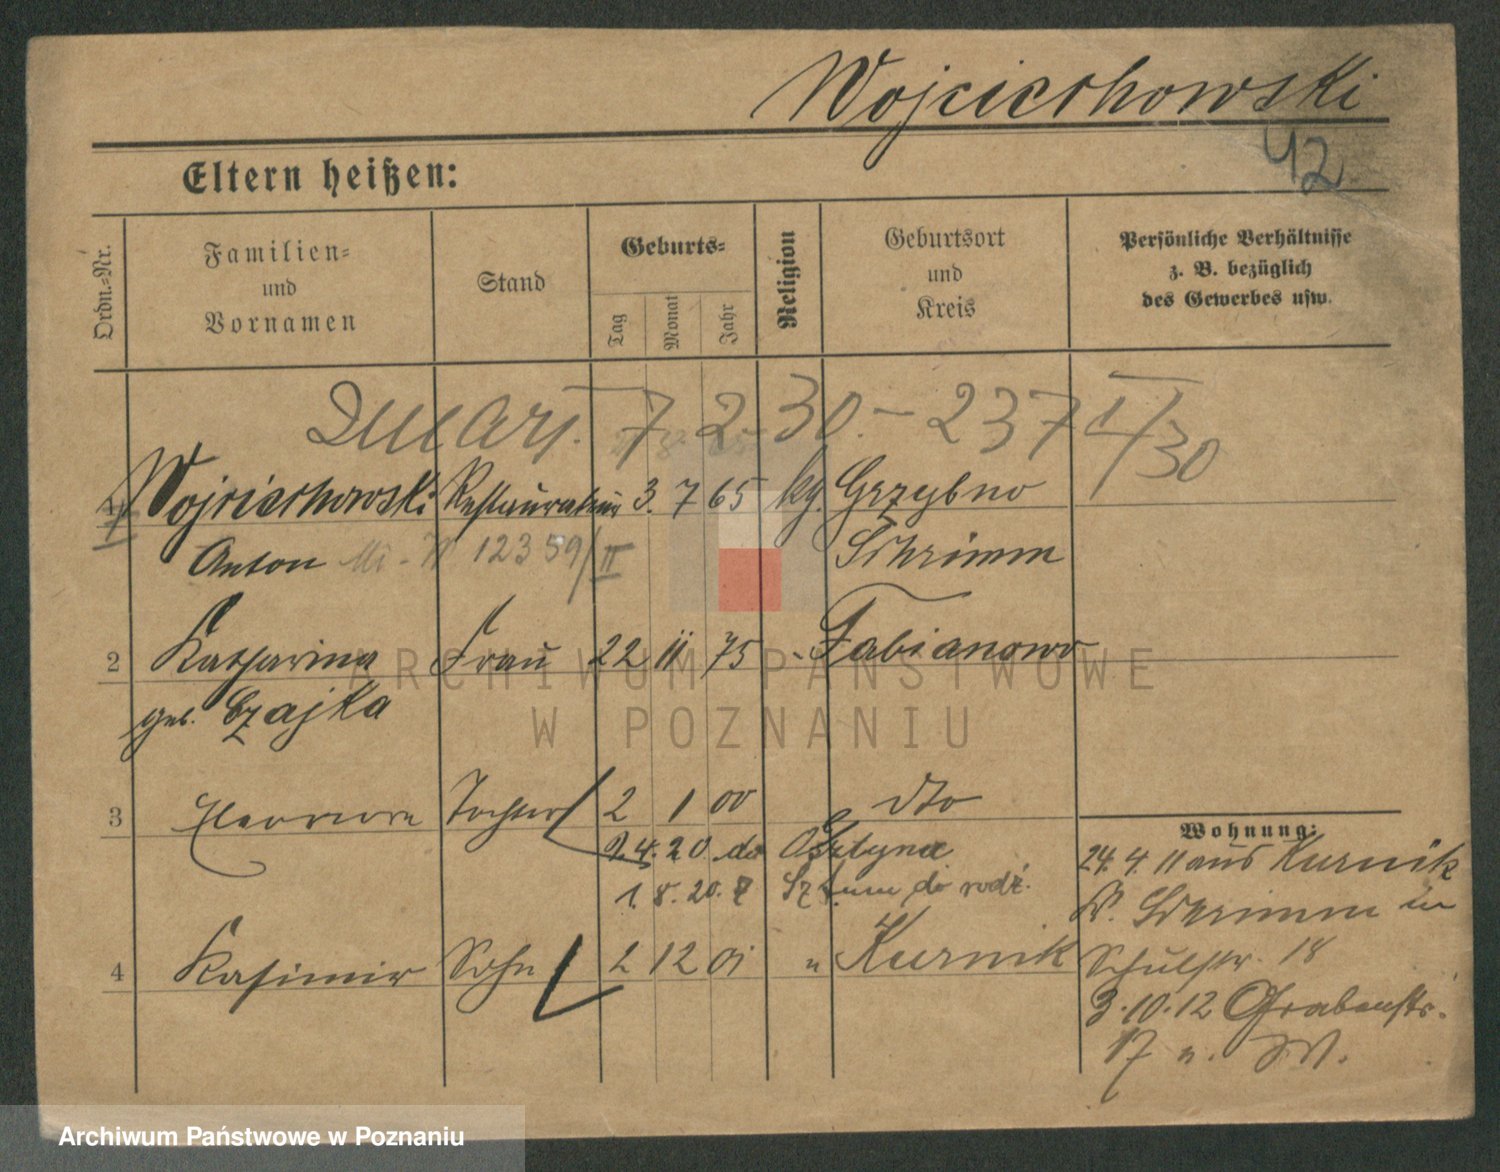 Wojciechowski
42
Eltern heißen:
Ordn.-Nr.
Familien- und Vornamen
Stand
Geburts-
Tag
Monat
Jahr
Religion
Geburtsort und Kreis
Persönliche Verhältnisse z. B. bezüglich des Gewerbes usw.
Zmarł. 7. 2. 30. - 237 I/30
1 Wojciechowski Restaurateur 3. 7 65 kg. Grzybno
Anton 12359/II Schrimm
2 Katharina Frau 22 11 75 - Fabianowo
geb. Czajka
3 Eleonore Tochter 2 1 00 dto
9.4.20 do Olsztyna
1. 8. 20. z Sztumu do rodz.
4 Kasimir Sohn 2 12 01 " Kurnik
Wohnung:
24. 4. 11 aus Kurnik
Kr. Schrimm in
Schulstr. 18
3.10.12 Grabenstr.
17 n. W.
ARCHIWUM PAŃSTWOWE
W POZNANIU
Archiwum Państwowe w Poznaniu